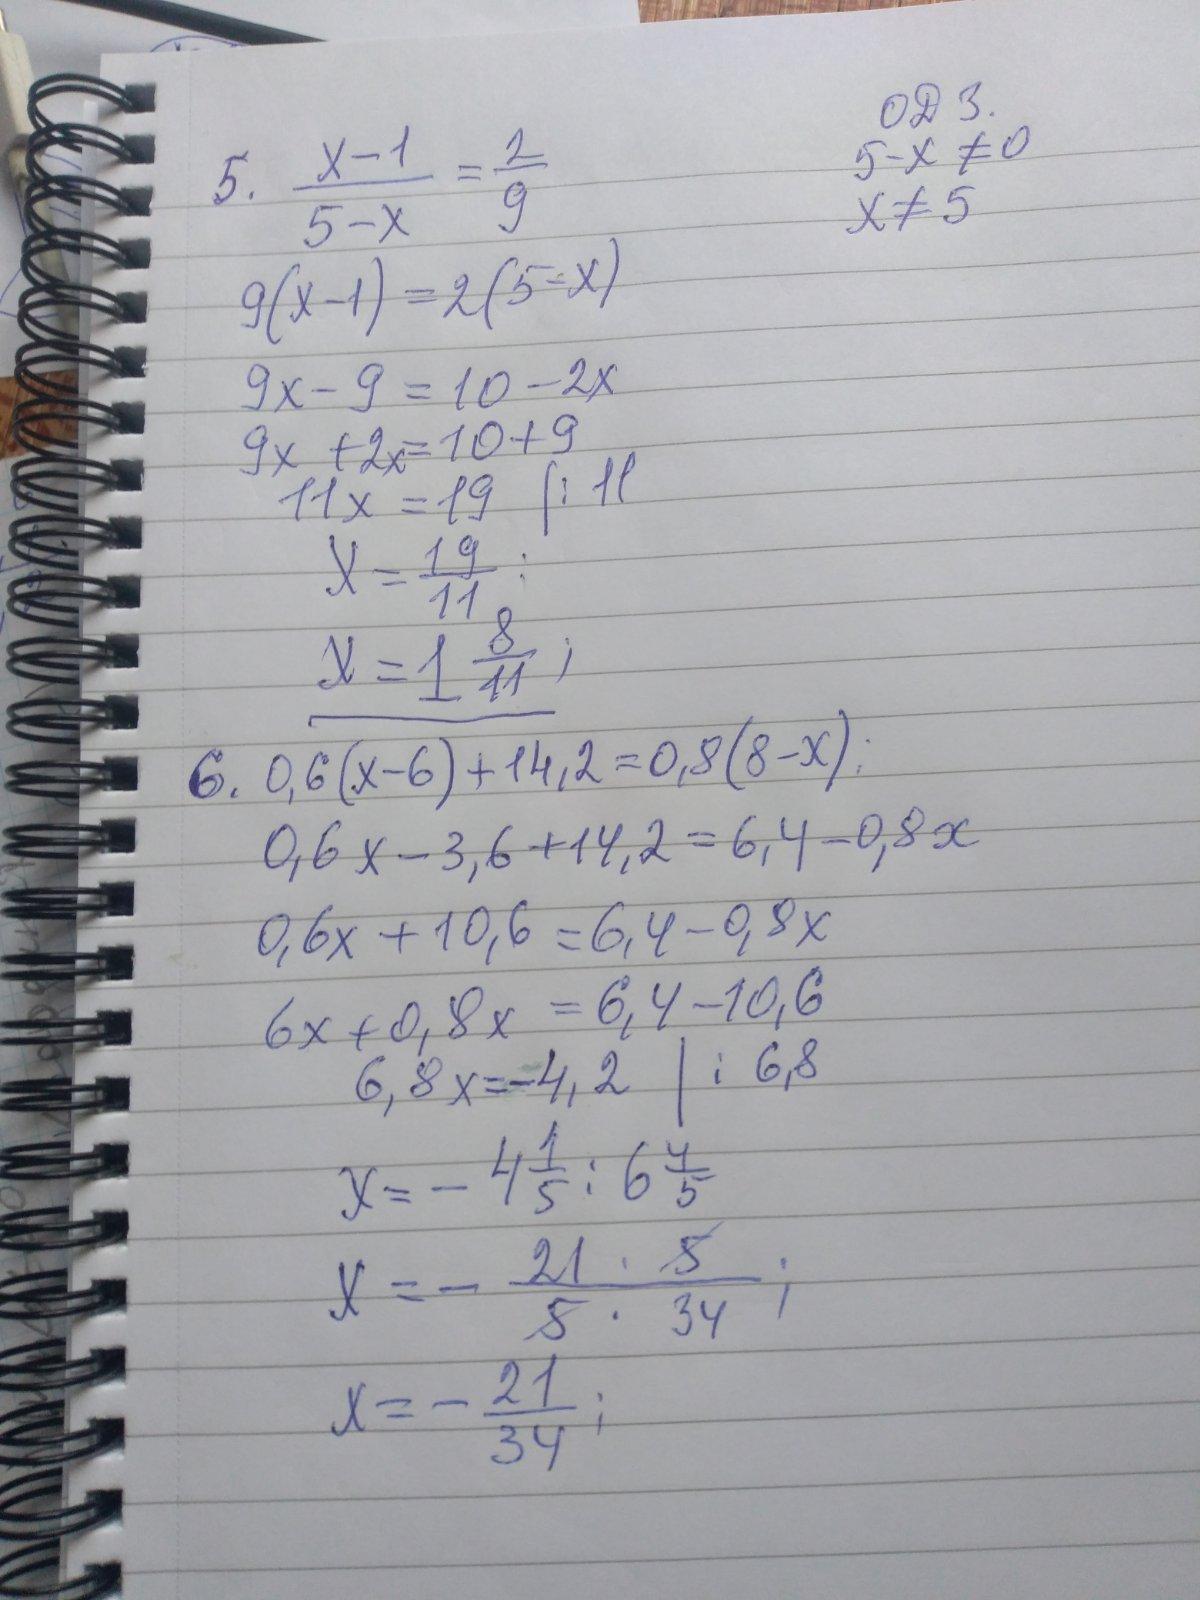 ОДЗ.
5-x ≠ 0
x ≠ 5
5. \frac{x-1}{5-x} = \frac{2}{9}
9(x-1) = 2(5-x)
9x - 9 = 10 - 2x
9x + 2x = 10 + 9
11x = 19 | : 11
x = \frac{19}{11} ;
x = 1 \frac{8}{11} ;
6. 0,6(x-6) + 14,2 = 0,8(8-x);
0,6x - 3,6 + 14,2 = 6,4 - 0,8x
0,6x + 10,6 = 6,4 - 0,8x
6x + 0,8x = 6,4 - 10,6
6,8x = -4,2 | : 6,8
x = - 4 \frac{1}{5} : 6 \frac{4}{5}
x = - \frac{21 · 5}{5 · 34} ;
x = - \frac{21}{34} ;